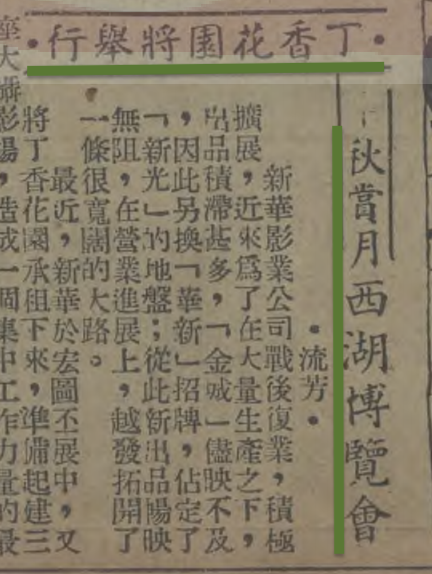 ・丁香花園將舉行・
秋賞月西湖博覽會
・流芳・
新華影業公司戰後復業,積極
擴展,近來爲了在大量生產之下,
出品積滯甚多,「金城」儘映不及
,因此另換「華新」招牌,佔定了
「新光」的地盤;從此新出品暢映
無阻,在營業進展上,越發拓開了
一條很寬闊的大路。
最近,新華於宏圖丕展中,又
將丁香花園承租下來,準備起建三
座大攝影場,造成一個集中工作力量的最